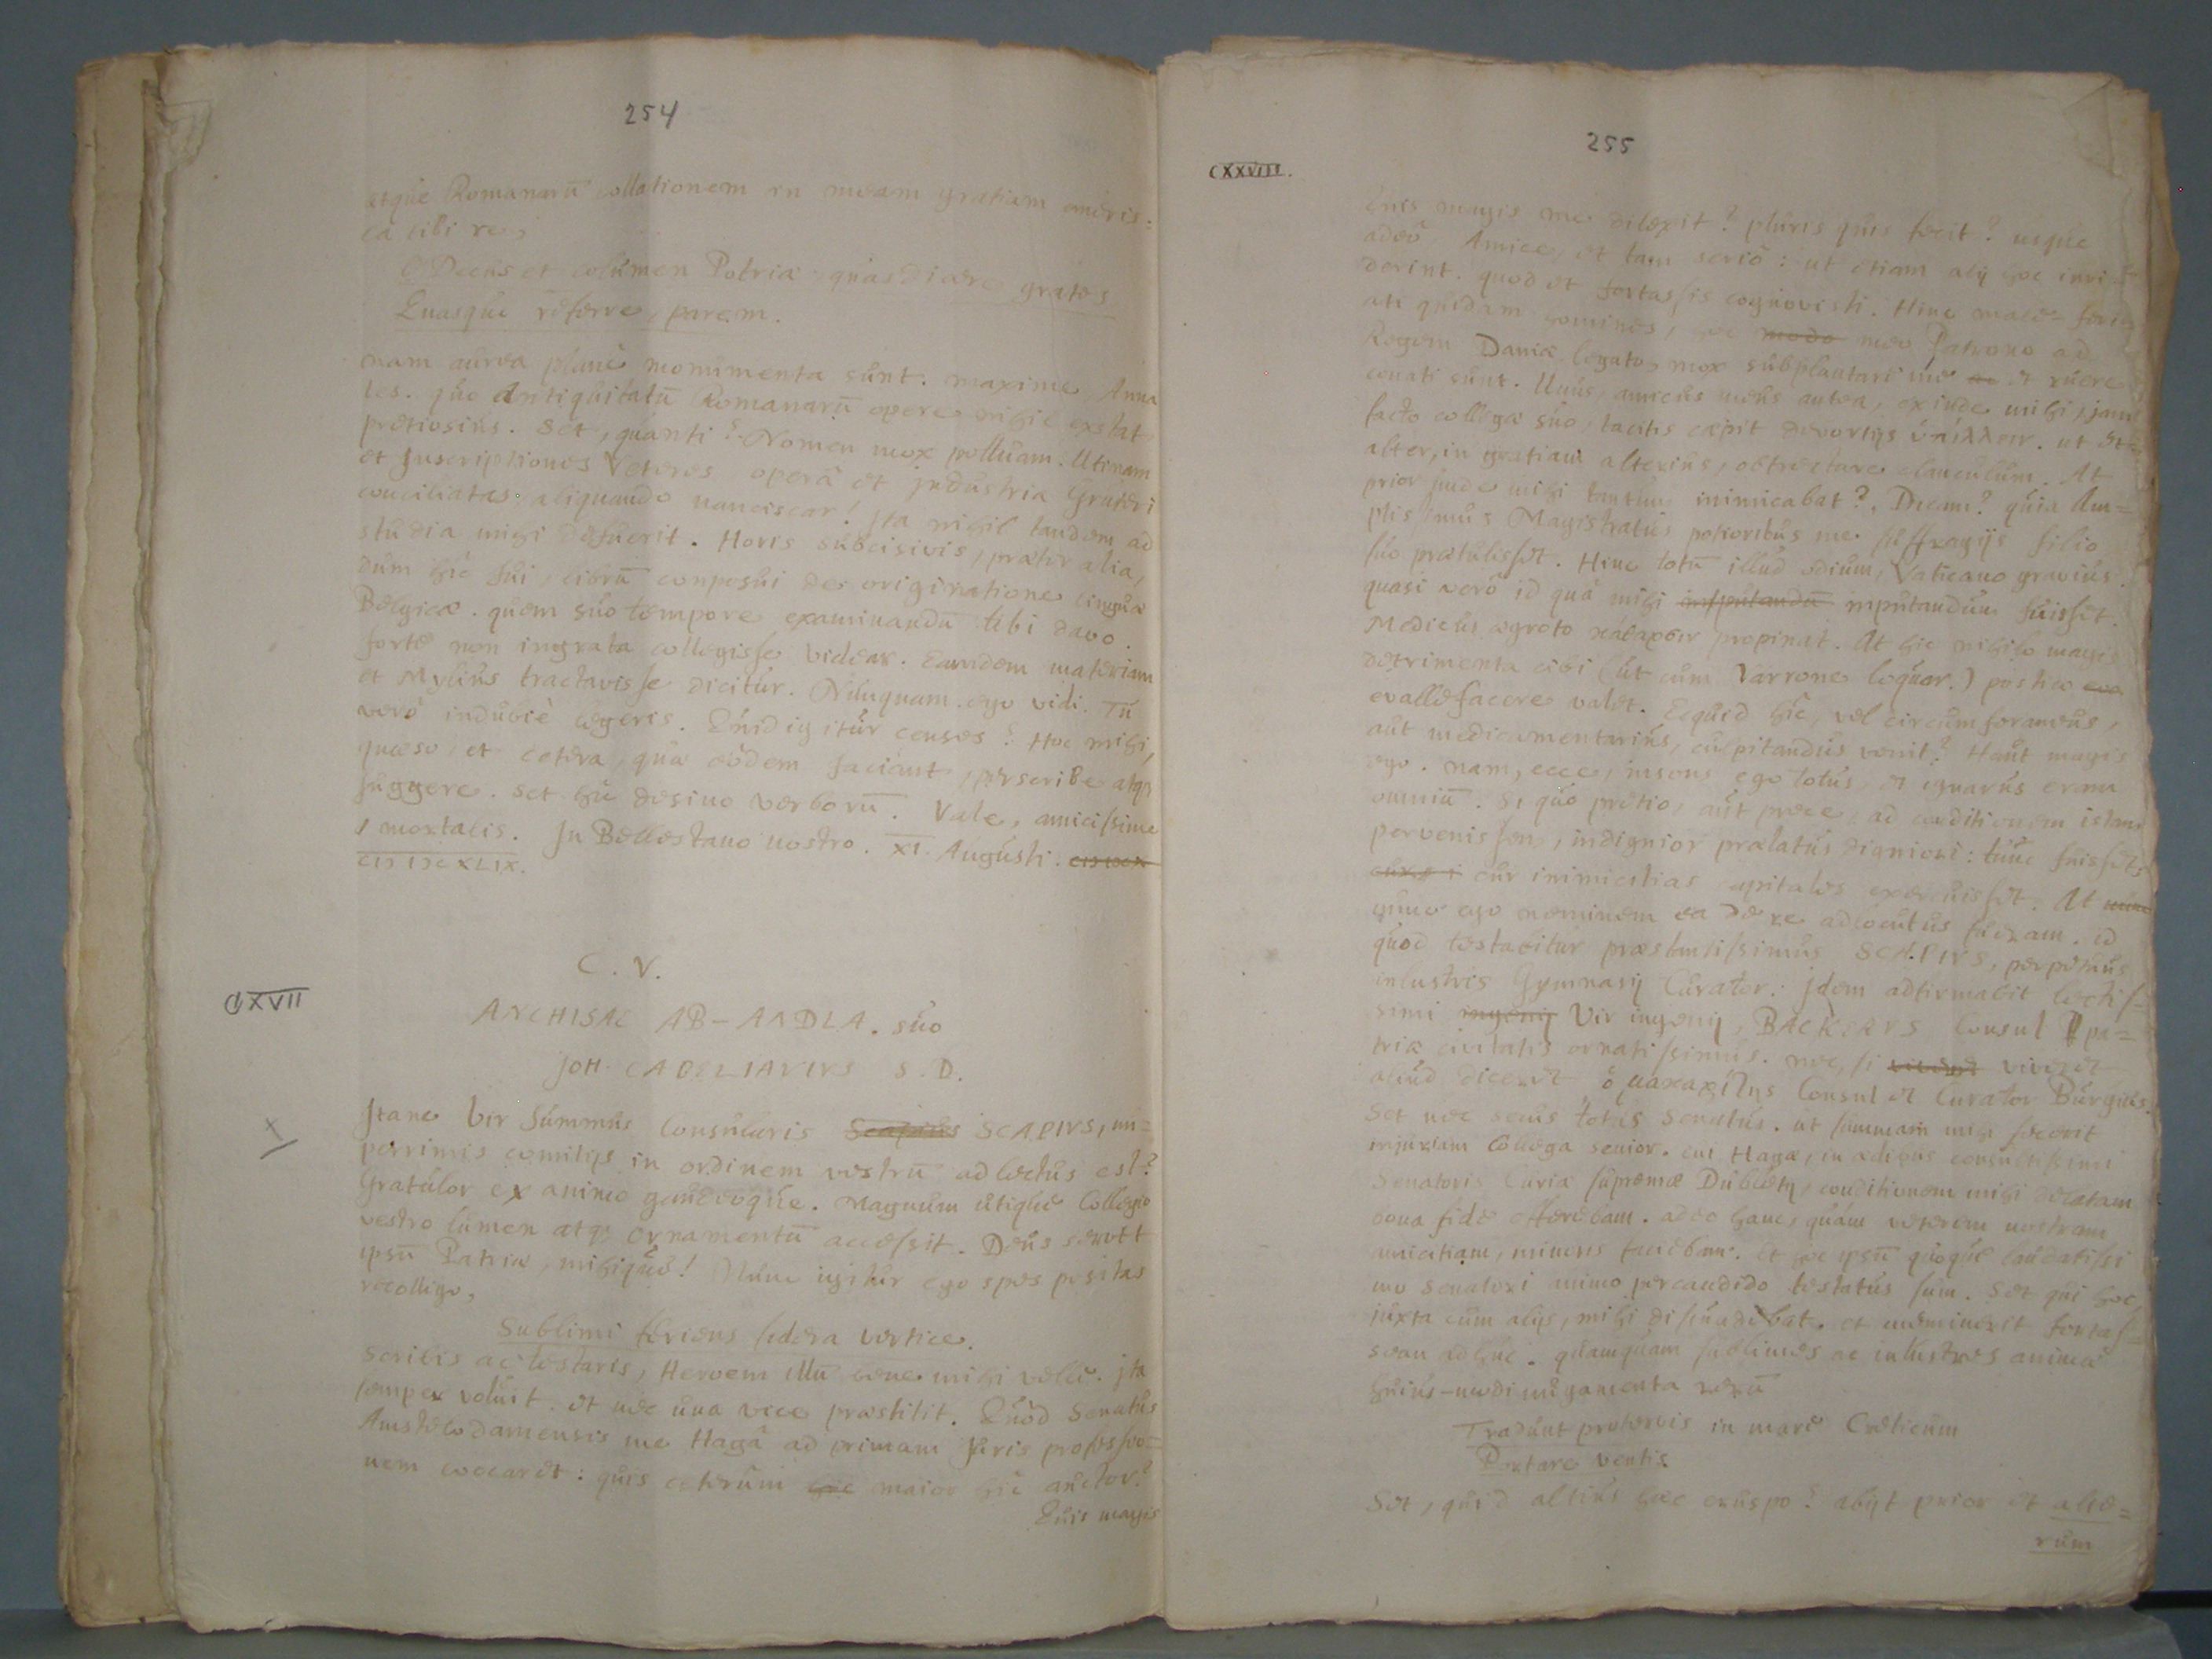 254
atque Romanarū collationem in meam gratiam
ea tibi re,
O Decus et columen Patriæ, quas dicere grates
Quasque referre, parem.
nam aurea planè monumenta sunt. maxime Anna
les. quo Antiquitatū Romanarū opere nihil exstat
pretiosius. Set, quanti? Nomen mox polluam. Utinam
et Inscriptiones Veteres, operâ et industria Gruteri
conciliatas, aliquando nanciscar! Ita nihil tandem ad
studia mihi defuerit. Horis subcisivis, præter alia,
dum hic fui, librū conposui de originatione linguæ
Belgicæ. quem suo tempore examinandū tibi dabo.
forte non ingrata collegisse videar. Eamdem materiam
et Mylius tractavisse dicitur. Nunquam ego vidi. Tu
verò indubiè legeris. Quid igitur censes? Hoc mihi,
quæso, et cetera, quæ eòdem faciant, perscribe atq;
suggere. Set hic desino verborū. Vale, amicissime
mortalis. In Bellostano nostro. XI. Augusti.
CIƆ IƆC XLIX.
C. V.
CXVII
ANCHISAE AB-ANDLA. suo
JOH. CABELIAVIVS S. D.
Itane Vir Summus Consularis Scapius SCAPIVS, nu=
perrimis comitijs in ordinem vestrū adlectus est?
Gratulor ex animo gaudeoque. Magnum utique Collegio
vestro lumen atq; ornamentū accessit. Deus servet
ipsū Patriæ, mihique! Nunc igitur ego spes positas
recolligo,
Sublimi feriens sidera vertice.
Scribis ac testaris, Heroem illū bene mihi velle. Ita
semper voluit. et nec una vice præstitit. Quòd Senatus
Amstelodamensis me Hagâ ad primam Juris professio=
nem vocaret: quis ceterum hic maior hic auctor?
Quis magis
255
CXXVIII.
Quis magis me dilexit? pluris quis fecit? usque
adeò, Amice, et tam seriò: ut etiam alij hoc invi=
derint. quod et fortassis cognovisti. Hinc male feri=
ati quidam homines, hoc modo meo Patrono ad
Regem Daniæ legato, mox subplantare me ac et ruere
conati sunt. Unus, amicus meus antea, exinde mihi, jam
facto collegæ suo, tacitis cœpit devortijs
alter, in gratiam alterius, obtrectare clanculum. At
prior inde mihi tantum inimicabat? Dicam? quia Am=
plissimus Magistratus potioribus me suffragijs filio
suo prætulisset. Hinc totū illud odium, Vaticano gravius.
quasi verò id quâ mihi inputandū inputandum fuisset.
Medicus ægroto propinat. At hic nihilo magis
detrimenta cibi (ut cum Varrone loquar) postea
evallefacere valet. Ecquid hîc, vel circumforaneus,
aut medicamentarius, culpitandus venit? Haut magis
ego. nam, ecce, insons ego totus, et ignarus eram
omniū. Si quo pretio, aut prece, ad conditionem istam
pervenissem, indignior prælatus digniori: tunc fuisset
cur inimicitias capitales exercuisset. At nunc
quum ego neminem ea de re adlocutus fueram. id
quod testabitur præstantissimus SCAPIVS, perpetuus
inlustris Gymnasij Curator. Idem adfirmabit lectis=
simi ingenij Vir ingenij, BACKERVS Consul pa=
triæ civitatis ornatissimus. nec, si viveret
aliud diceret ὁ μακαρίτης Consul et Curator Burgius.
Set nec secus totus Senatus. at summam mihi fecerit
injuriam Collega senior. cui Hagæ, in ædibus consultissimi
Senatoris Curiæ supremæ Dubleti, conditionem mihi delatam
bona fide offerebam. adeo hanc, quàm veterem nostram
amicitiam, minoris faciebam. Et hoc ipsū quoque laudatissi
mo Senatori animo percandido testatus sum. Set qui hoc,
juxta cum alijs, mihi dissuadebat. et meminerit fortas=
sean adhuc. quamquam sublimes ac inlustres animæ
huius-modi nugamenta rerū
Tradunt protervis in mare Creticum
Portare ventis.
Set, quid altius hæc eruspo? abijt prior et alte=
rum